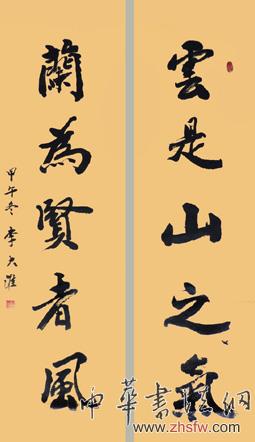 雲是山之氣
蘭為賢者風
甲午冬李大淮
中華書法網
www.zhsfw.com